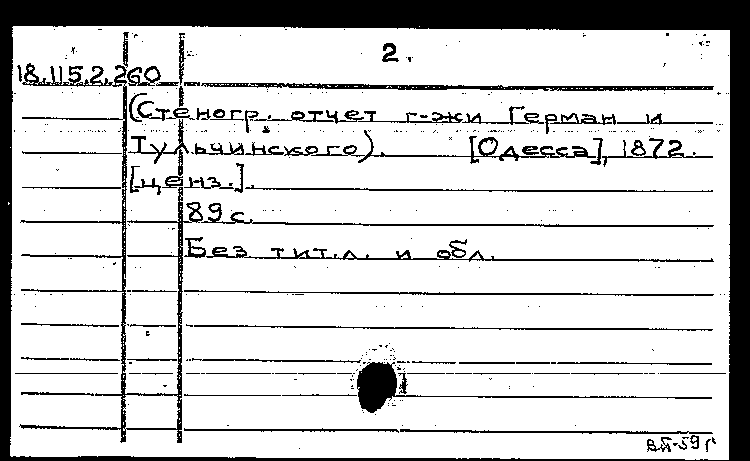 2.
18.115.2.260
(Стеногр. отчет г-жи Герман и
Тульчинского). [Одесса], 1872.
[ценз.].
89 с.
Без тит.л. и обл.